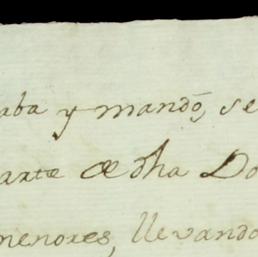 aba y mandó, se
arte de dha Do
menores, llevando